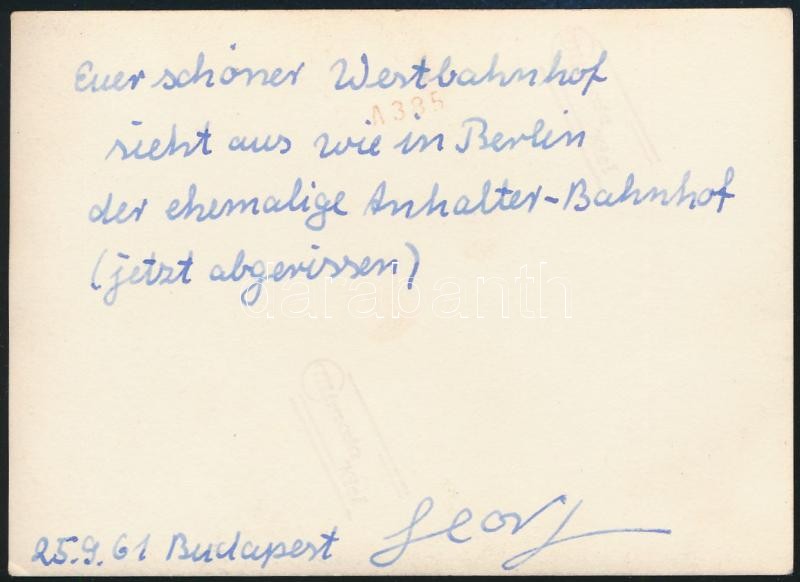 Euer schöner Westbahnhof
A 335
sieht aus wie in Berlin
der ehemalige Anhalter-Bahnhof
(jetzt abgerissen)
darabanth
25.9.61 Budapest Georg